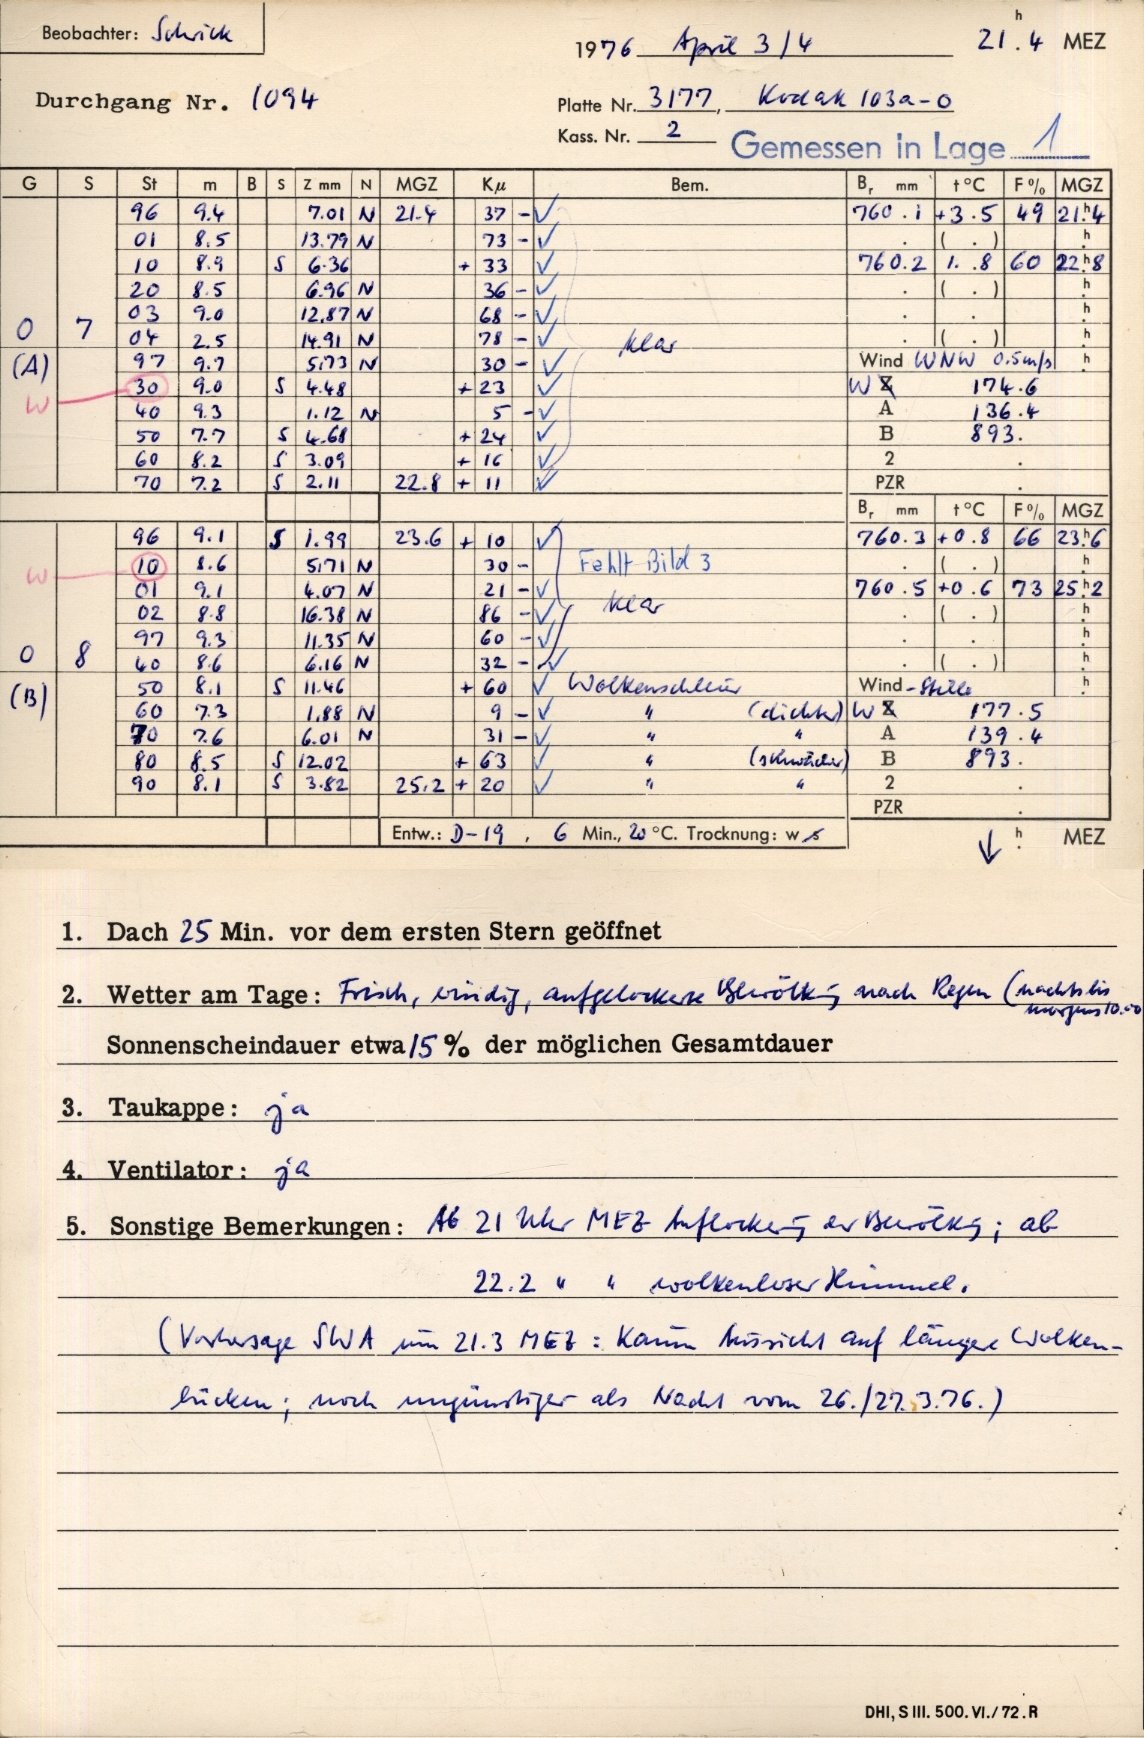 Beobachter: Schrick
1976 April 3/4 21.h4 MEZ
Durchgang Nr. 1094
Platte Nr. 3177, Kodak 103a-O
Kass. Nr. 2 Gemessen in Lage 1
G S St m B S Z mm N MGZ Kμ Bem. Br mm t°C F% MGZ
96 9.4 7.01 N 21.4 37 - ✓ 760.1 +3.5 49 21.h4
01 8.5 13.79 N 73 - ✓ . ( . ) h.
10 8.9 S 6.36 + 33 ✓ 760.2 1.8 60 22.h8
20 8.5 6.96 N 36 - ✓ . ( . ) h.
03 9.0 12.87 N 68 - ✓ . . h.
0 7 04 2.5 14.91 N 78 - ✓ klar . ( . ) h.
(A) 97 9.7 5.73 N 30 - ✓ Wind WNW 0.5m/s h.
W 30 9.0 S 4.48 + 23 ✓ W 174.6
40 9.3 1.12 N 5 - ✓ A 136.4
50 7.7 S 4.68 + 24 ✓ B 893.
60 8.2 S 3.09 + 16 ✓ 2 .
70 7.2 S 2.11 22.8 + 11 ✓ PZR .
Br mm t°C F% MGZ
96 9.1 S 1.99 23.6 + 10 ✓ 760.3 +0.8 66 23.h6
W 10 8.6 5.71 N 30 - Fehlt Bild 3 . ( . ) h.
01 9.1 4.07 N 21 - ✓ klar 760.5 +0.6 73 25.h2
02 8.8 16.38 N 86 - ✓ . ( . ) h.
97 9.3 11.35 N 60 - ✓ . . h.
0 8 40 8.6 6.16 N 32 - ✓ . ( . ) h.
(B) 50 8.1 S 11.46 + 60 ✓ Wolkenschleier Wind - Stille h.
60 7.3 1.88 N 9 - ✓ " (dichter) W 177.5
70 7.6 6.01 N 31 - ✓ " " A 139.4
80 8.5 S 12.02 + 63 ✓ " (schwächer) B 893.
90 8.1 S 3.82 25.2 + 20 ✓ " " 2 .
PZR .
Entw.: D-19, 6 Min., 20 °C. Trocknung: w s ↓ h. MEZ
1. Dach 25 Min. vor dem ersten Stern geöffnet
2. Wetter am Tage: Frisch, windig, aufgelockerte Bewölkung nach Regen (nachts bis
morgens 10.00
Sonnenscheindauer etwa 15% der möglichen Gesamtdauer
3. Taukappe: ja
4. Ventilator: ja
5. Sonstige Bemerkungen: Ab 21 Uhr MEZ Auflockerung der Bewölkg; ab
22.2 " " wolkenloser Himmel.
(Vorhersage SWA um 21.3 MEZ: Kaum Aussicht auf längere Wolken-
lücken; noch ungünstiger als Nacht vom 26./27.3.76.)
DHI, S III. 500. VI./72. R